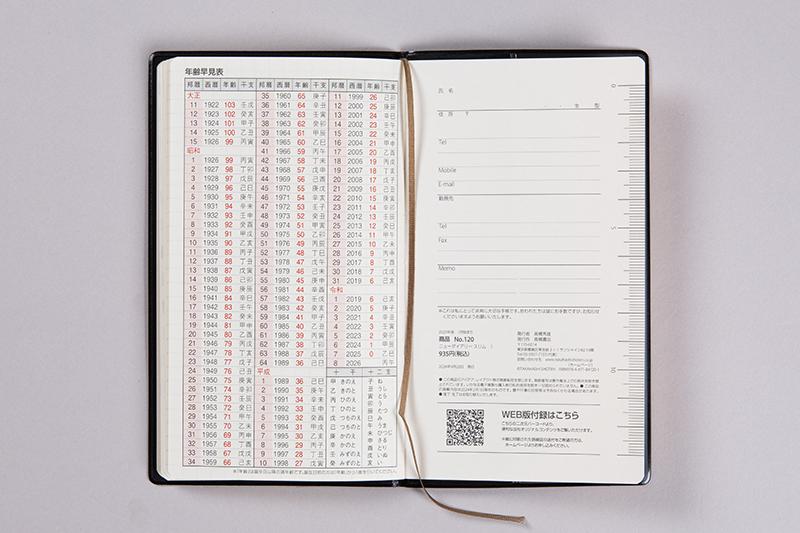 年齢早見表
邦暦 西暦 年齢 干支
大正
11 1922 103 壬戌
12 1923 102 癸亥
13 1924 101 甲子
14 1925 100 乙丑
15 1926 99 丙寅
昭和
1 1926 99 丙寅
2 1927 98 丁卯
3 1928 97 戊辰
4 1929 96 己巳
5 1930 95 庚午
6 1931 94 辛未
7 1932 93 壬申
8 1933 92 癸酉
9 1934 91 甲戌
10 1935 90 乙亥
11 1936 89 丙子
12 1937 88 丁丑
13 1938 87 戊寅
14 1939 86 己卯
15 1940 85 庚辰
16 1941 84 辛巳
17 1942 83 壬午
18 1943 82 癸未
19 1944 81 甲申
20 1945 80 乙酉
21 1946 79 丙戌
22 1947 78 丁亥
23 1948 77 戊子
24 1949 76 己丑
25 1950 75 庚寅
26 1951 74 辛卯
27 1952 73 壬辰
28 1953 72 癸巳
29 1954 71 甲午
30 1955 70 乙未
31 1956 69 丙申
32 1957 68 丁酉
33 1958 67 戊戌
34 1959 66 己亥
邦暦 西暦 年齢 干支
35 1960 65 庚子
36 1961 64 辛丑
37 1962 63 壬寅
38 1963 62 癸卯
39 1964 61 甲辰
40 1965 60 乙巳
41 1966 59 丙午
42 1967 58 丁未
43 1968 57 戊申
44 1969 56 己酉
45 1970 55 庚戌
46 1971 54 辛亥
47 1972 53 壬子
48 1973 52 癸丑
49 1974 51 甲寅
50 1975 50 乙卯
51 1976 49 丙辰
52 1977 48 丁巳
53 1978 47 戊午
54 1979 46 己未
55 1980 45 庚申
56 1981 44 辛酉
57 1982 43 壬戌
58 1983 42 癸亥
59 1984 41 甲子
60 1985 40 乙丑
61 1986 39 丙寅
62 1987 38 丁卯
63 1988 37 戊辰
64 1989 36 己巳
平成
1 1989 36 己巳
2 1990 35 庚午
3 1991 34 辛未
4 1992 33 壬申
5 1993 32 癸酉
6 1994 31 甲戌
7 1995 30 乙亥
8 1996 29 丙子
9 1997 28 丁丑
10 1998 27 戊寅
邦暦 西暦 年齢 干支
11 1999 26 己卯
12 2000 25 庚辰
13 2001 24 辛巳
14 2002 23 壬午
15 2003 22 癸未
16 2004 21 甲申
17 2005 20 乙酉
18 2006 19 丙戌
19 2007 18 丁亥
20 2008 17 戊子
21 2009 16 己丑
22 2010 15 庚寅
23 2011 14 辛卯
24 2012 13 壬辰
25 2013 12 癸巳
26 2014 11 甲午
27 2015 10 乙未
28 2016 9 丙申
29 2017 8 丁酉
30 2018 7 戊戌
31 2019 6 己亥
令和
1 2019 6 己亥
2 2020 5 庚子
3 2021 4 辛丑
4 2022 3 壬寅
5 2023 2 癸卯
6 2024 1 甲辰
7 2025 0 乙巳
8 2026 丙午
十干 十二支
甲 きのえ 子 ね
乙 きのと 丑 うし
丙 ひのえ 寅 とら
丁 ひのと 卯 う
戊 つちのえ 辰 たつ
己 つちのと 巳 み
庚 かのえ 午 うま
辛 かのと 未 ひつじ
壬 みずのえ 申 さる
癸 みずのと 酉 とり
戌 いぬ
亥 い
氏 名
年 型
住 所 〒
Tel
Mobile
E-mail
勤務先
Tel
Fax
Memo
0
5
10
商品 No.120
ニューダイアリー スリム 1
935円(税込)
発行者 高橋秀雄
発行所 高橋書店
〒170-6014
WEB版付録はこちら
こちらの二次元バーコードより、
便利な当社オリジナルコンテンツをご覧いただけます。